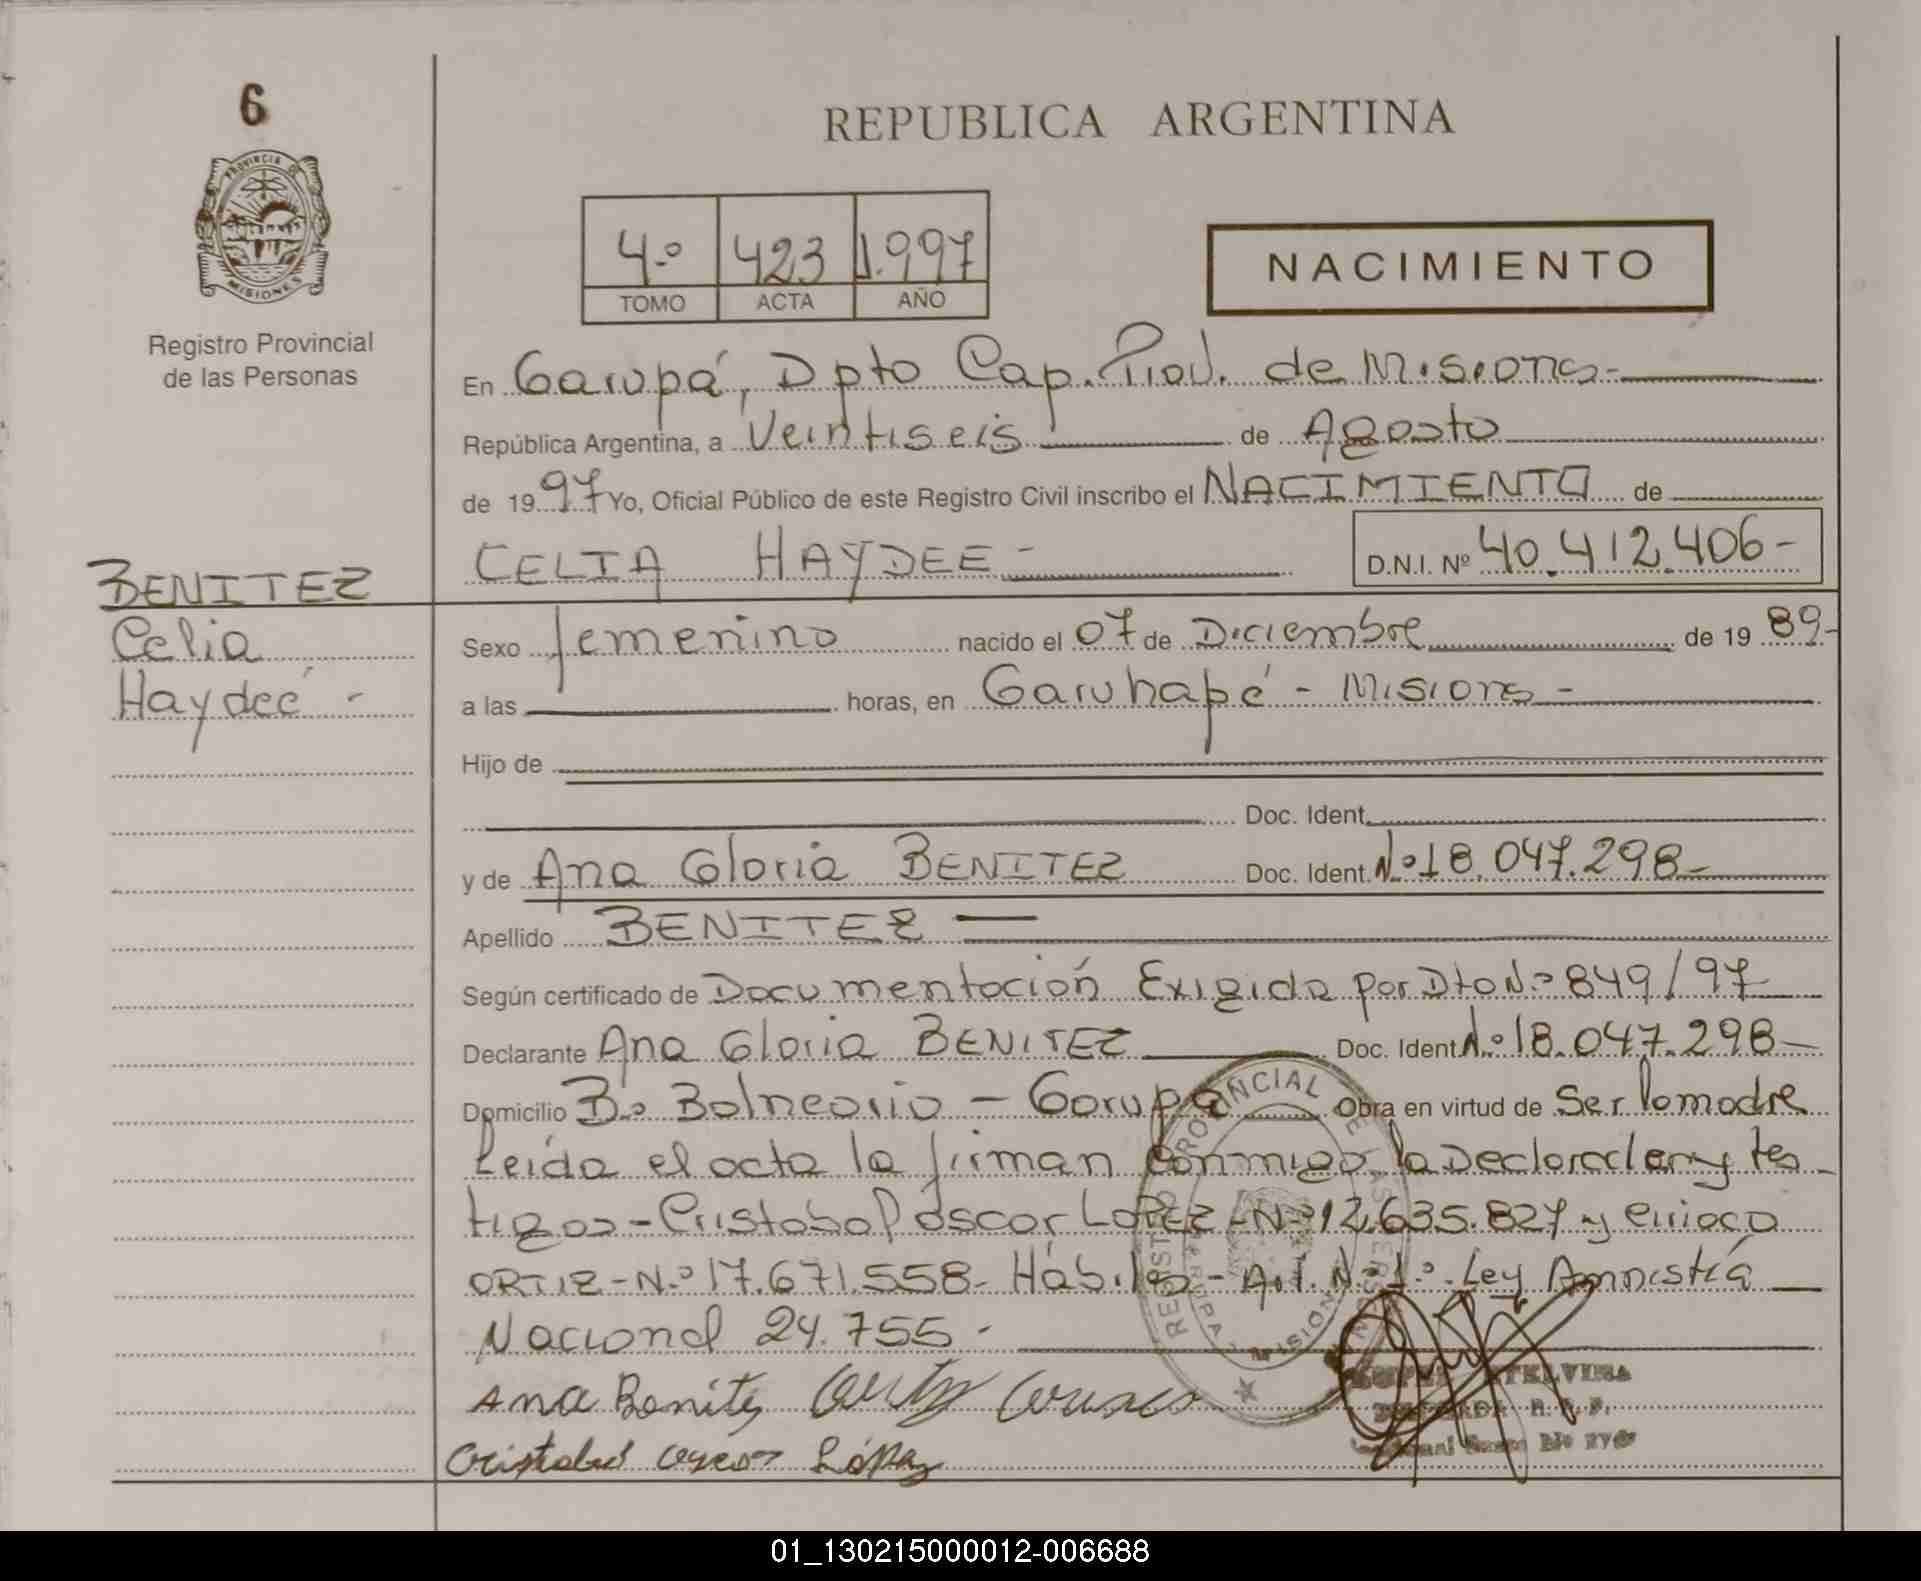 6
REPUBLICA ARGENTINA
PROVINCIA DE
MISIONES
Registro Provincial
de las Personas
4.º 423 1.997
TOMO ACTA AÑO
NACIMIENTO
En Garupá, Dpto Cap. Prov. de Misiones.-
República Argentina, a Veintiseis de Agosto
de 1997 Yo, Oficial Público de este Registro Civil inscribo el NACIMIENTO de
CELIA HAYDEE - D.N.I. Nº 40.412.406-
BENITEZ
Celia
Haydeé -
Sexo femenino nacido el 07 de Diciembre de 1989-
a las horas, en Garuhapé - Misiones -
Hijo de
Doc. Ident.
y de Ana Gloria BENITEZ Doc. Ident. Nº 18.047.298-
Apellido BENITEZ
Según certificado de Documentación Exigida por Dto Nº 849/97
Declarante Ana Gloria BENITEZ Doc. Ident. Nº 18.047.298-
Domicilio Bº Balneario - Garupa Obra en virtud de Ser la madre
Leida el acta la firman conmigo, la y tes
tigos - Cristobal oscar LOPEZ - Nº 12.635.827 y
ORTIZ - N.º 17.671.558 - Hábiles - Art. Nº 1º. Ley Amnistía
Nacional 24.755 -
Ana Benitez
Cristobal oscar López
REGISTRO PROVINCIAL DE LAS PERSONAS
GARUPA MISIONES
ETELVINA
01_130215000012-006688